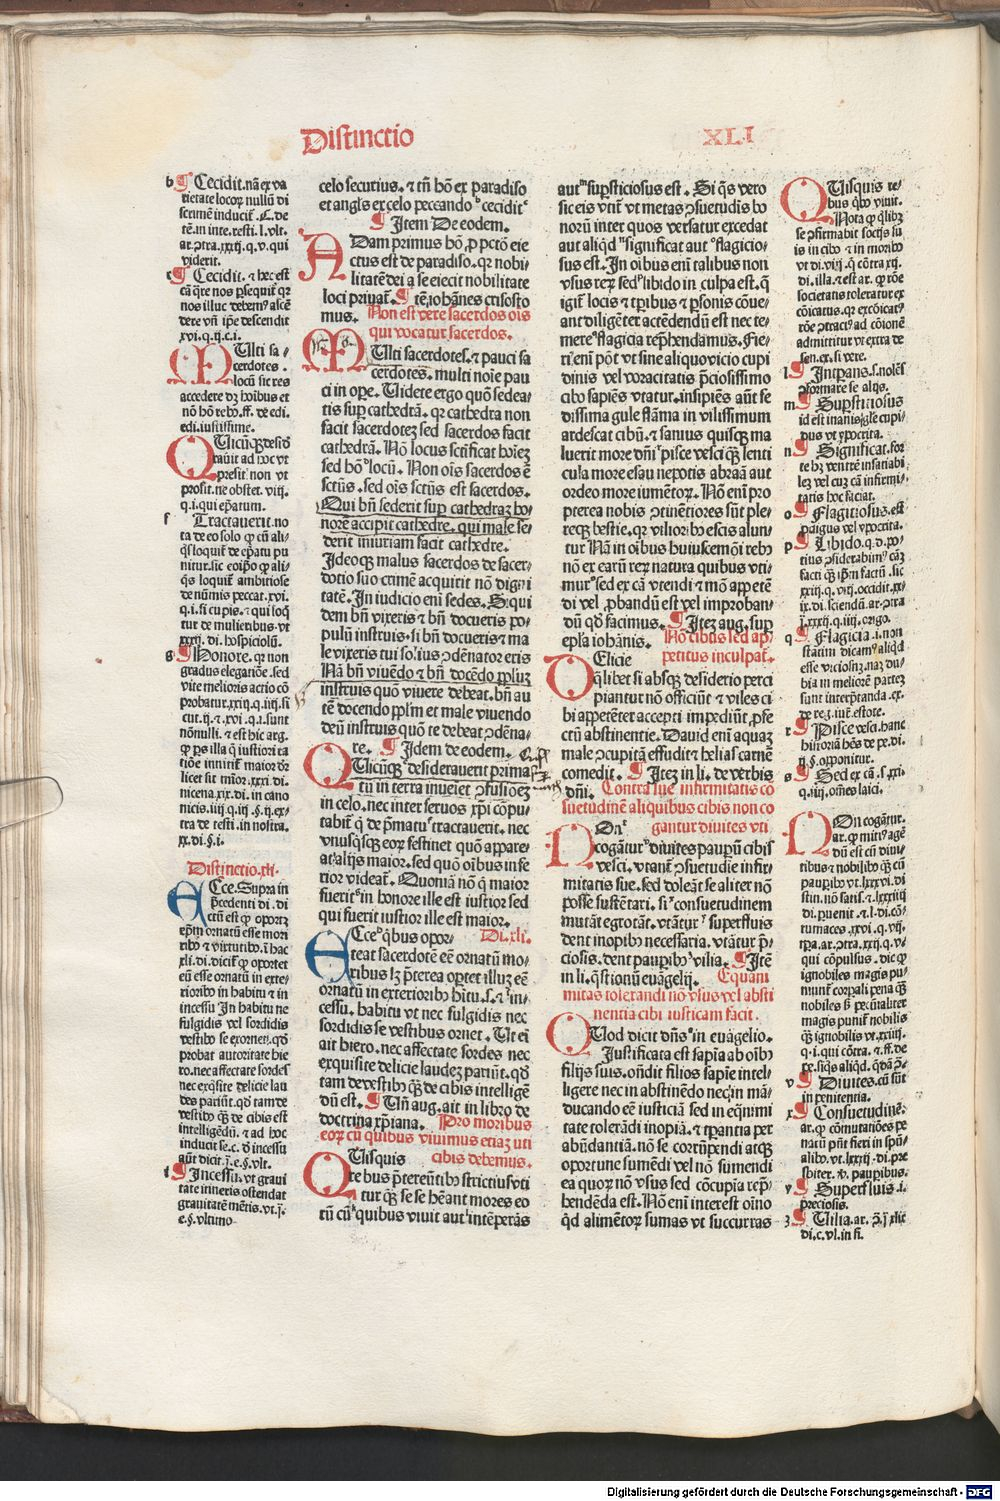 Distinctio
XLI
b ¶ Cecidit. nã ex va
rietate locoꝝ nullũ di
scrimẽ inducit̃. C. de
tẽ. in inte. resti. l. vlt.
ar. ꝯtra. xxiij. q. v. qui
viderit.
c ¶ Cecidit. ⁊ hec est
cã q̃re nos ꝑsequit̃ qꝛ
nos illuc debemꝰ ascẽ
dere vñ ip̃e descendit
xvi. q. ij. c. i.
MUlti sa-
cerdotes.
locũ sic res
accedere dꝫ hoĩbus et
nõ hõ rebꝰ. ff. de edi.
edi. iustissime.
QUicũqꝫ desid̾
rauit ad hoc vt
presit. non vt
prosit. ne obstet. viij.
q. i. qui ep̃atum.
f Tractauerit. no
ta de eo solo qͥ cũ ali-
q̃s loquit̃ de ep̃atu pu
nitur. sic eoip̃o ꝙ ali-
q̃s loquit̃ ambitiose
de nũmis peccat. xvi.
q. i. si cupis. ⁊ qui loq̃
tur de mulieribus. vt
xxxij. di. hospiciolũ.
g ¶ Honore. qꝛ non
gradus elegariõe. sed
vite melioris actio cõ
probatur. xxiij. q. iiij. si
cut. ij. ⁊. xvi. q. i. sunt
nõnulli. ⁊ est hic arg.
Distinctio. xli.
ECce. Supra in
p̃cedenti di. di
ctũ est ꝙ oportꝫ
ep̃m ornatũ esse mori
ribꝰ ⁊ virtutibꝰ. ĩ hac
xli. di. dicit̃ ꝙ oportet
eũ esse ornatũ in exte-
rioribꝰ in habitu ⁊ in
incessu In habitu ne
fulgidis vel sordidis
vestibꝰ se exornet. qđ
probat autoritate hie
ro. nec affectate sordes
nec exq̃site delicie lau
des pariũt. qđ tam de
vestibꝰ qꝫ de cibis est
intelligẽdũ. ⁊ ad hoc
inducit se. c. đ incessu
aũt dicit. j. e. §. vlt.
i ¶ Incessu. vt graui
tate itineris ostendat
grauitatẽ mẽtis. vt. j.
e. §. vltimo
celo securius. ⁊ tñ hõ ex paradiso
et angl̃s ex celo peccando ᵇ cecidit ᶜ
¶ Item De eodem.
ADam primus hõ. ꝓ pctõ eie
ctus est de paradiso. qꝛ nobi-
litatẽ dei a se eiecit nobilitate
loci priuat̃. ¶ Itẽ. iohãnes crisosto
mus. Non est vere sacerdos oĩs
qui vocatur sacerdos.
MUlti sacerdotes. ⁊ pauci sa
cerdotes. multi noĩe pau
ci in oꝑe. Uidete ergo quõ sedea-
tis suꝑ cathedrã. qꝛ cathedra non
facit sacerdotẽ sed sacerdos facit
cathedrã. Nõ locus sctificat hoĩeꝫ
sed hõ ᵉ locũ. Non oĩs sacerdos ẽ
sctũs. sed oĩs sctũs est sacerdos.
Qui bñ sederit suꝑ cathedraꝫ ho
norẽ accipit cathedre. qui male se-
derit iniuriam facit cathedre.
Ideoqꝫ malus sacerdos de sacer-
dotio suo crimẽ acquirit nõ digni
tatẽ. In iudicio eni sedes. Si qui
dem bñ vixeris ⁊ bñ docueris po-
pulũ instruis. si bñ docueris ⁊ ma
le vixeris tui soliꝰ ꝯdẽnator eris
Nã bñ viuẽdo ⁊ bñ docẽdo ꝑꝑl̃m
instruis quõ viuere debeat. bñ au
tẽ docendo ꝑꝑl̃m et male viuendo
deũ instruis quõ te debeat ꝯdẽna-
re. ¶ Idem de eodem.
QUicũqꝫ desiderauerit prima
tũ in terra inueiet ꝯfusiõeꝫ
in celo. nec inter seruos xp̃i cõpu-
tabit̃ q̃ de p̃matu ᶠ tractauerit. nec
vnusqꝫqꝫ eoꝝ festinet quõ appare-
at alijs maior. sed quõ oĩbus infe
rior videat̃. Quoniã nõ q̃ maior
fuerit ᵍ in honore ille est iustior sed
qui fuerit iustior ille est maior.
ECce ʰ q̃bus opor- Di. xli.
teat sacerdotẽ eẽ ornatũ mo-
ribus lꝫ p̃terea oꝑtet illuꝫ eẽ
ornatũ in exterioribꝰ hĩtu. s. ⁊ ⁱ in-
cessu. habitu vt nec fulgidis nec
sordidis se vestibus ornet. Ut eĩ
ait hiero. nec affectate sordes nec
exquisite delicie laudeꝫ pariũt. qđ
tam de vestibꝰ qꝫ de cibis intelligẽ
dũ est. ¶ Uñ aug. ait in libro de
doctrina xp̃iana. Pro moribus
eoꝝ cũ quibus viuimus etiaꝫ uti
cibis debemus.
QUisquis
re bus p̃tereũtibꝰ strictiusᵛti
tur qꝫ se se hẽant mores eo
rũ cũ ᵏ quibus viuit aut ˡ intẽperãs
aut ᵐ suꝑsticiosus est. Si q̃s vero
sic eis vtit̃ vt metas ꝯsuetudĩs bo
norũ inter quos versatur excedat
aut aliqđ ⁿ significat aut ᵒ flagicio-
sus est. In oĩbus eni talibus non
vsus reꝝ sed ᵖ libido in culpa est. q̃
igit̃ locis ⁊ tp̃ribus ⁊ ꝑsonis cõue-
ant diligẽter actẽdendũ est nec te-
mere ᑫ flagicia rep̃hendamus. Fie-
ri eni põt vt sine aliquo vicio cupi
dinis vel voracitatis p̃ciosissimo
cibo sapiẽs vtatur. insipiẽs aũt fe
dissima gule flãma in vilissimum
ardescat cibũ. ⁊ sanius quisqꝫ ma
luerit more dñi ʳ pisce vesci qꝫ lenti
cula more esau nepotis abraã aut
ordeo more iumẽtoꝝ. Nõ eni pro
pterea nobis ꝯtinẽtiores sũt ple-
reqꝫ bestie. qꝛ vilioribꝰ escis alun-
tur Nã in oĩbus huiuscemõi rebꝰ
nõ ex earũ reꝝ natura quibus vti-
mur ˢ sed ex cã vtendi ⁊ mõ appetẽ
di vel ꝓbandũ est vel improban-
dũ qđ facimus. ¶ Iteꝫ aug. suꝑ
epl̃a iohãnis. Nõ cibus sed ap-
petitus inculpat̃.
DElicie
q̃libet si absqꝫ desiderio perci
piantur nõ officiũt ⁊ viles ci
bi appetẽter accepti impediũt ꝑfe
ctũ abstinentie. Dauid eni aquaꝫ
male ꝯcupitã effudit ⁊ helias carnẽ
comedit. ¶ Iteꝫ in li. de verbis
dñi. Contra sue infirmitatis cõ
suetudinẽ aliquibus cibis non co
gantur diuites vti
NOn ᵗ
cogãtur ᵛ diuites pauꝑũ cibis
vesci. vtant̃ ˣ ꝯsuetudie infir-
mitatis sue. sed doleãt se aliter nõ
posse sustẽtari. si ᵛ consuetudinem
mutãt egrotãt. vtãtur ʸ superfluis
dent inopibꝰ necessaria. vtãtur p̃-
ciosis. dent pauꝑibꝰ ᶻ vilia. ¶ Itẽ
in li. q̃stionũ euãgelij. Equani
mitas tolerandi nõ vsus vel absti
nentia cibi iusticiam facit.
QUod dicit dñs ᵃ in euãgelio.
Justificata est sapĩa ab oĩbꝰ
filijs suis. oñdit filios sapĩe intel-
ligere nec in abstinẽdo nec ĩ in mã-
ducando eẽ iusticiã sed in eq̃nimi
tate tolerãdi inopiã. ⁊ tp̃rantia per
abũdantiã. nõ se corrũpendi atqꝫ
oportune sumẽdi vel nõ sumendi
ea quoꝝ nõ vsus sed cõcupia rep̃-
hendẽda est. Nõ eni interest oĩno
qđ alimẽtoꝝ sumas vt succurras
QUisquis re-
bus q̃bꝰ viuit.
Nota ꝙ q̃libꝫ
se ꝯfirmabit socijs su
is in cibo ⁊ in moribꝰ
societatis toleratur ex
cõicatus. qꝛ excõicat̃
admittitur vt extra de
sen. ex. si vere.
l ¶ Intꝑans. s. nolẽs
ꝯformare se alijs.
m ¶ Suꝑsticiosus
id est inanis gl̃e cupi-
dus vt ypocrita.
n ¶ Significat. for
te hꝫ ventrẽ insatiabi
leꝫ vel cuꝫ cã infirmi-
tatis hoc faciat.
o ¶ Flagitiosus. est
paꝛgus vel ypocrita.
p ¶ Libido. q. d. po-
tius ꝯsiderabimꝰ cãꝫ
facti qꝫ ip̃m factũ. sic
xxiij. q. viij. occidit. xx-
ix. di. sciendũ. ar. ꝯtra
j. xxxij. q. iiij. origo.
q ¶ Flagicia. i. non
statim dicamꝰ aliqđ
esse viciosuꝫ. naꝫ du-
bia in meliorẽ partẽ
sunt interp̃tanda. ex.
de reg. iur̃. estote.
r ¶ Pisce vesci. hanc
historiã hẽs de pe. di.
ij. §. opponitur.
s ¶ Sed ex cã. s. xxi.
q. iiij. oẽs laici.
NOn cogãtur.
ar. ꝙ mitiꝰ agẽ
dũ est cũ diui-
tibus ⁊ nobilibꝰ qꝫ cũ
pauꝑibꝰ vt. lxxxvi. di
stin. nõ satis. ⁊. lxxxiiij
di. ꝑuenit. ⁊. l. di. cõ-
tumaces. xxvi. q. vij.
tp̃a. ar. ꝯtra. xxij. q. v.
qui cõpulsus. dic ꝙ
ignobiles magis pu-
niunt̃ corꝑali pena qꝫ
nobiles sꝫ pecũialiter
magis punit̃ nobilis
qꝫ ignobilis vt. xxiiij.
q. i. qui cõtra. ⁊. ff. de
re. si q̃s aliqđ. q̃dã ꝑ-
v ¶ Diuites. cũ sũt
in penitentia.
x ¶ Consuetudinẽ.
ar. ꝙ cõmutatiões pe-
narũ pñt fieri in spũ-
alibꝰ. vt. lxxxij. di. p̃s
biter. ⁊. pauꝑibus.
y ¶ Superfluis. i.
preciosis.
z ¶ Uilia. ar. ꝯ̃. j. xlij.
di. c. vl. in fi.
Digitalisierung gefördert durch die Deutsche Forschungsgemeinschaft - DFG